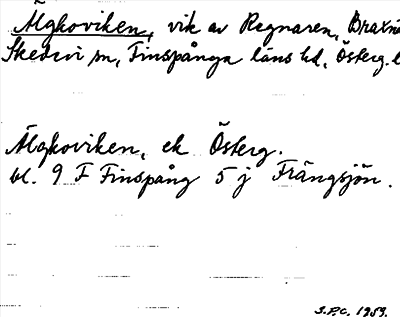 Älgkoviken, vik av Regnaren,
Skedevi sn, Finspånga läns hd, Österg.
Älgkoviken, ek Österg.
bl. 9 F Finspång 5 j Frängsjön.
S.P.C. 1959.